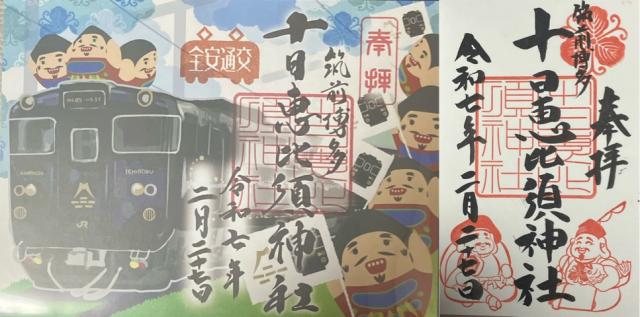 交通安全
奉拝
筑前博多
十日恵比須神社
令和七年
二月二十七日
KAWASEMI
ISHINOBU
JR
奉拝
筑前博多
十日恵比須神社
令和七年二月二十七日